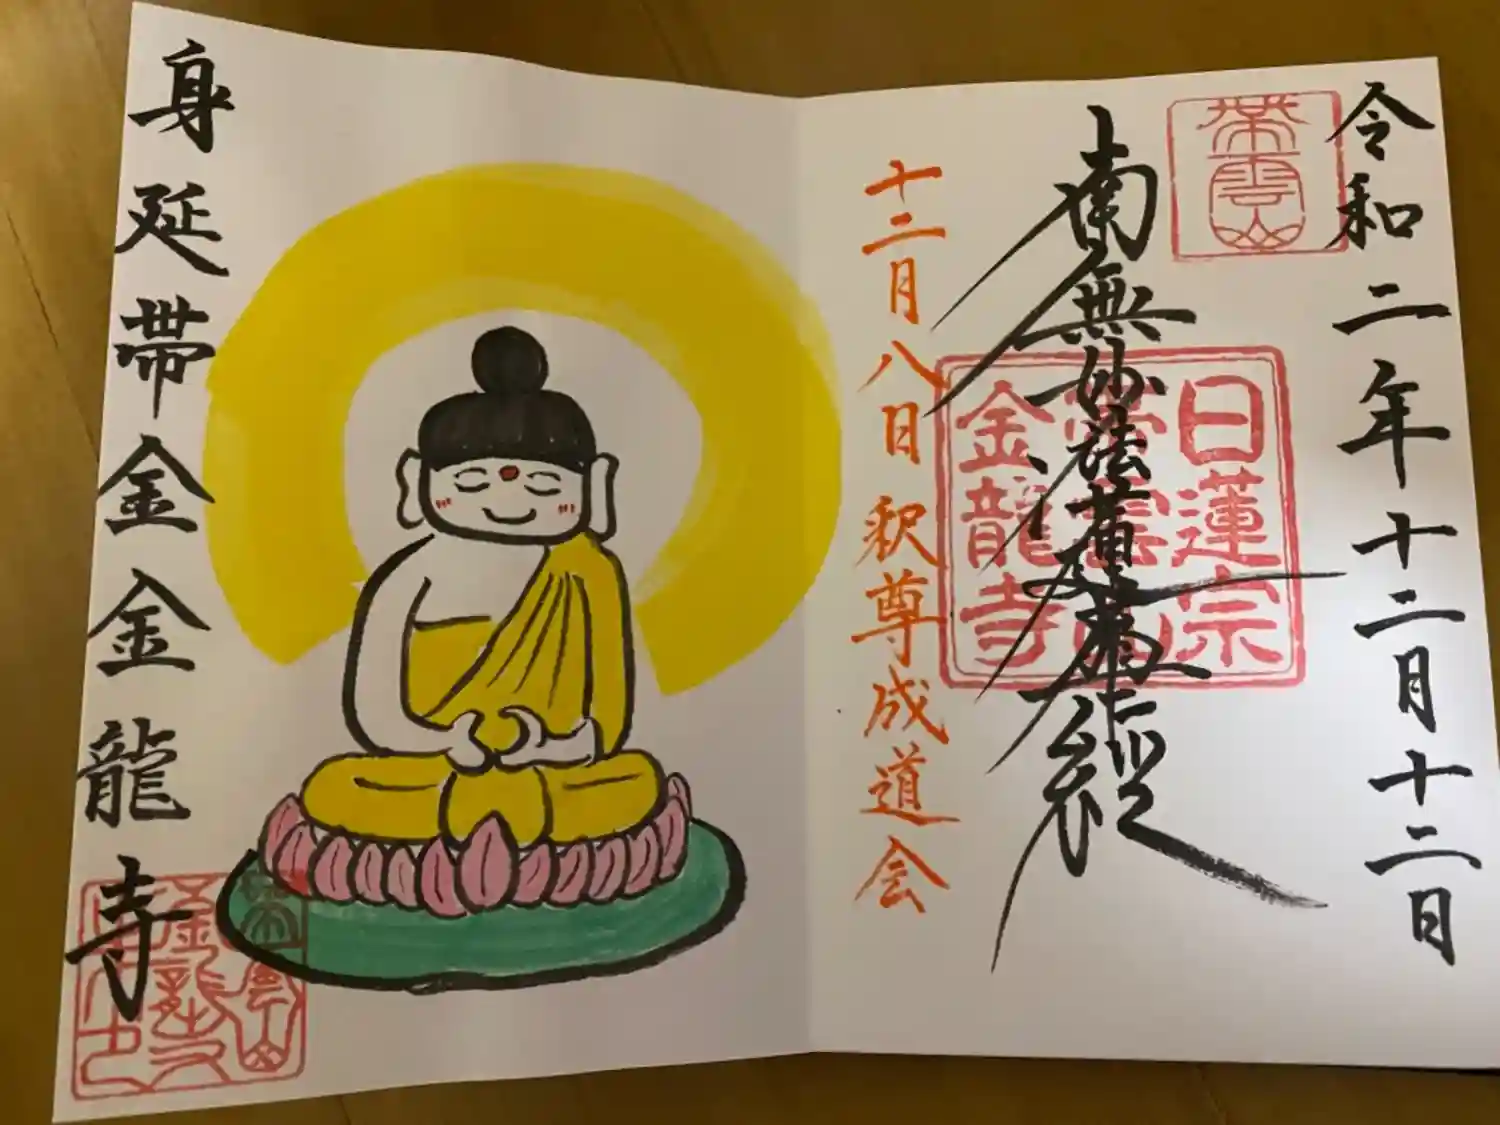 令和二年十二月十二日
帯雲山
南無妙法蓮華経
日蓮宗
帯雲山
金龍寺
十二月八日 釈尊成道会
身延帯金金龍寺